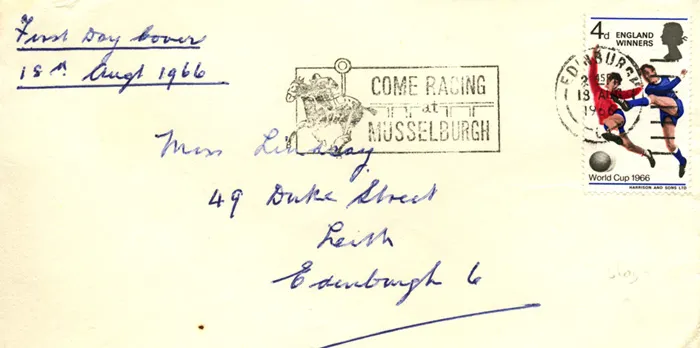 First Day Cover
18th Augt 1966
COME RACING
at
MUSSELBURGH
4d ENGLAND
WINNERS
EDINBURGH
18 AUG
1966
World Cup 1966
HARRISON AND SONS LTD
Miss Lindsay
49 Duke Street
Leith
Edinburgh 6